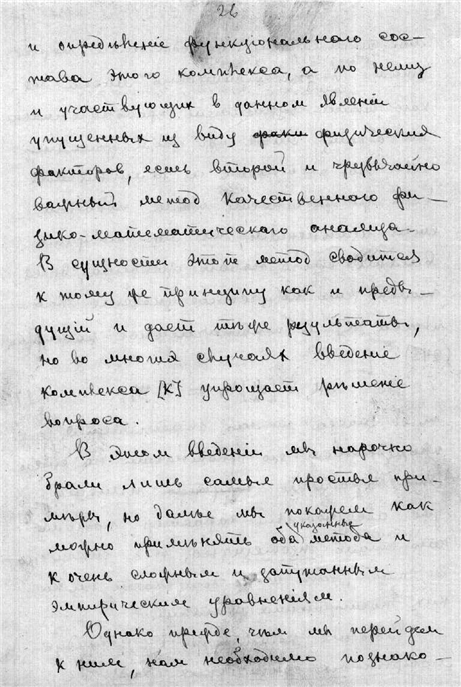 26
и опредѣленіе функціональнаго сос-
тава этого комплекса, а по нему
и участвующих в данном явленіи
упущенных из виду физических
факторов, есть второй и чрезвычайно
важный метод качественного фи-
зико-математическаго анализа.
В сущности этот метод сводится
к тому же принципу как и преды-
дущій и дает тѣже результаты,
но во многих случаях введеніе
комплекса [K] упрощает рѣшеніе
вопроса.
В этом введеніи мы нарочно
брали лишь самые простые при-
мѣры, но дальше мы покажем как
можно примѣнять оба указанные метода и
к очень сложным и запутанным
эмпирическим уравненіям.
Однако прежде, чѣм мы перейдем
к ним, нам необходимо познако-